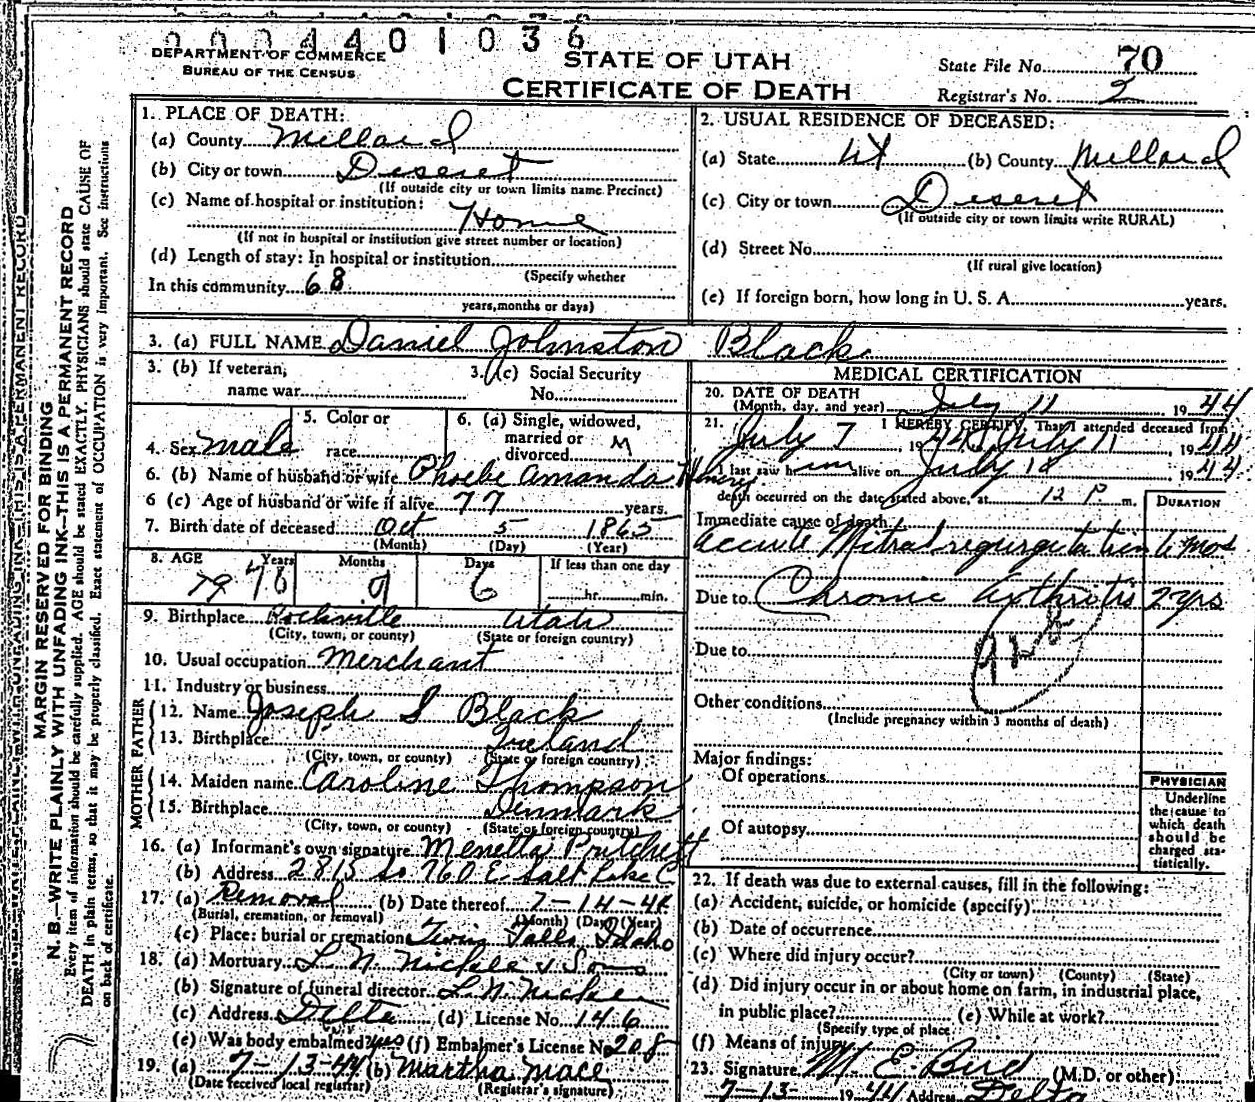 0004401036
DEPARTMENT OF COMMERCE
BUREAU OF THE CENSUS
STATE OF UTAH
CERTIFICATE OF DEATH
State File No. 70
Registrar's No. 2
MARGIN RESERVED FOR BINDING
N. B.—WRITE PLAINLY WITH UNFADING INK—THIS IS A PERMANENT RECORD
Every item of information should be carefully supplied. AGE should be stated EXACTLY. PHYSICIANS should state CAUSE OF
DEATH in plain terms, so that it may be properly classified. Exact statement of OCCUPATION is very important. See instructions
on back of certificate.
1. PLACE OF DEATH:
(a) County Millard
(b) City or town Deseret
(If outside city or town limits name Precinct)
(c) Name of hospital or institution:
Home
(If not in hospital or institution give street number or location)
(d) Length of stay: In hospital or institution
(Specify whether
In this community 68
years, months or days)
2. USUAL RESIDENCE OF DECEASED:
(a) State Ut (b) County Millard
(c) City or town Deseret
(If outside city or town limits write RURAL)
(d) Street No.
(If rural give location)
(e) If foreign born, how long in U. S. A. years.
3. (a) FULL NAME Daniel Johnston Black
3. (b) If veteran,
name war
3. (c) Social Security
No.
4. Sex male
5. Color or
race
6. (a) Single, widowed,
married or
divorced M
6. (b) Name of husband or wife Phoebe Amanda Henry
6 (c) Age of husband or wife if alive 77 years.
7. Birth date of deceased Oct 5 1865
(Month) (Day) (Year)
8. AGE Years Months Days If less than one day
79 78 9 6 hr. min.
9. Birthplace Rockville Utah
(City, town, or county) (State or foreign country)
10. Usual occupation Merchant
11. Industry or business
FATHER
12. Name Joseph S Black
13. Birthplace Ireland
(City, town, or county) (State or foreign country)
MOTHER
14. Maiden name Caroline Thompson
15. Birthplace Denmark
(City, town, or county) (State or foreign country)
16. (a) Informant's own signature Menetta Pritchett
(b) Address 2815 So 760 E. Salt Lake C
17. (a) Removal (b) Date thereof 7-14-44
(Burial, cremation, or removal) (Month) (Day) (Year)
(c) Place: burial or cremation Twin Falls Idaho
18. (a) Mortuary L. N. Nickle & Sons
(b) Signature of funeral director L. N. Nickle
(c) Address Delta (d) License No. 146
(e) Was body embalmed? yes (f) Embalmer's License No 208
19. (a) 7-13-44 (b) Martha Mace
(Date received local registrar) (Registrar's signature)
MEDICAL CERTIFICATION
20. DATE OF DEATH
(Month, day, and year) July 11, 1944
21. I HEREBY CERTIFY, That I attended deceased from
July 7, 1944 July 11, 1944
I last saw him alive on July 18, 1944
death occurred on the date stated above, at 12 P m.
DURATION
Immediate cause of death
accute Mitral regurgitation 6 mos
Due to Chronic Arthritis 2 yrs
92B
Due to
Other conditions
(Include pregnancy within 3 months of death)
Major findings:
Of operations
Of autopsy
PHYSICIAN
Underline
the cause to
which death
should be
charged sta-
tistically.
22. If death was due to external causes, fill in the following:
(a) Accident, suicide, or homicide (specify)
(b) Date of occurrence
(c) Where did injury occur?
(City or town) (County) (State)
(d) Did injury occur in or about home on farm, in industrial place,
in public place? (e) While at work?
(Specify type of place
(f) Means of injury
23. Signature M. E. Bird (M.D. or other)
7-13- 1944 Address Delta